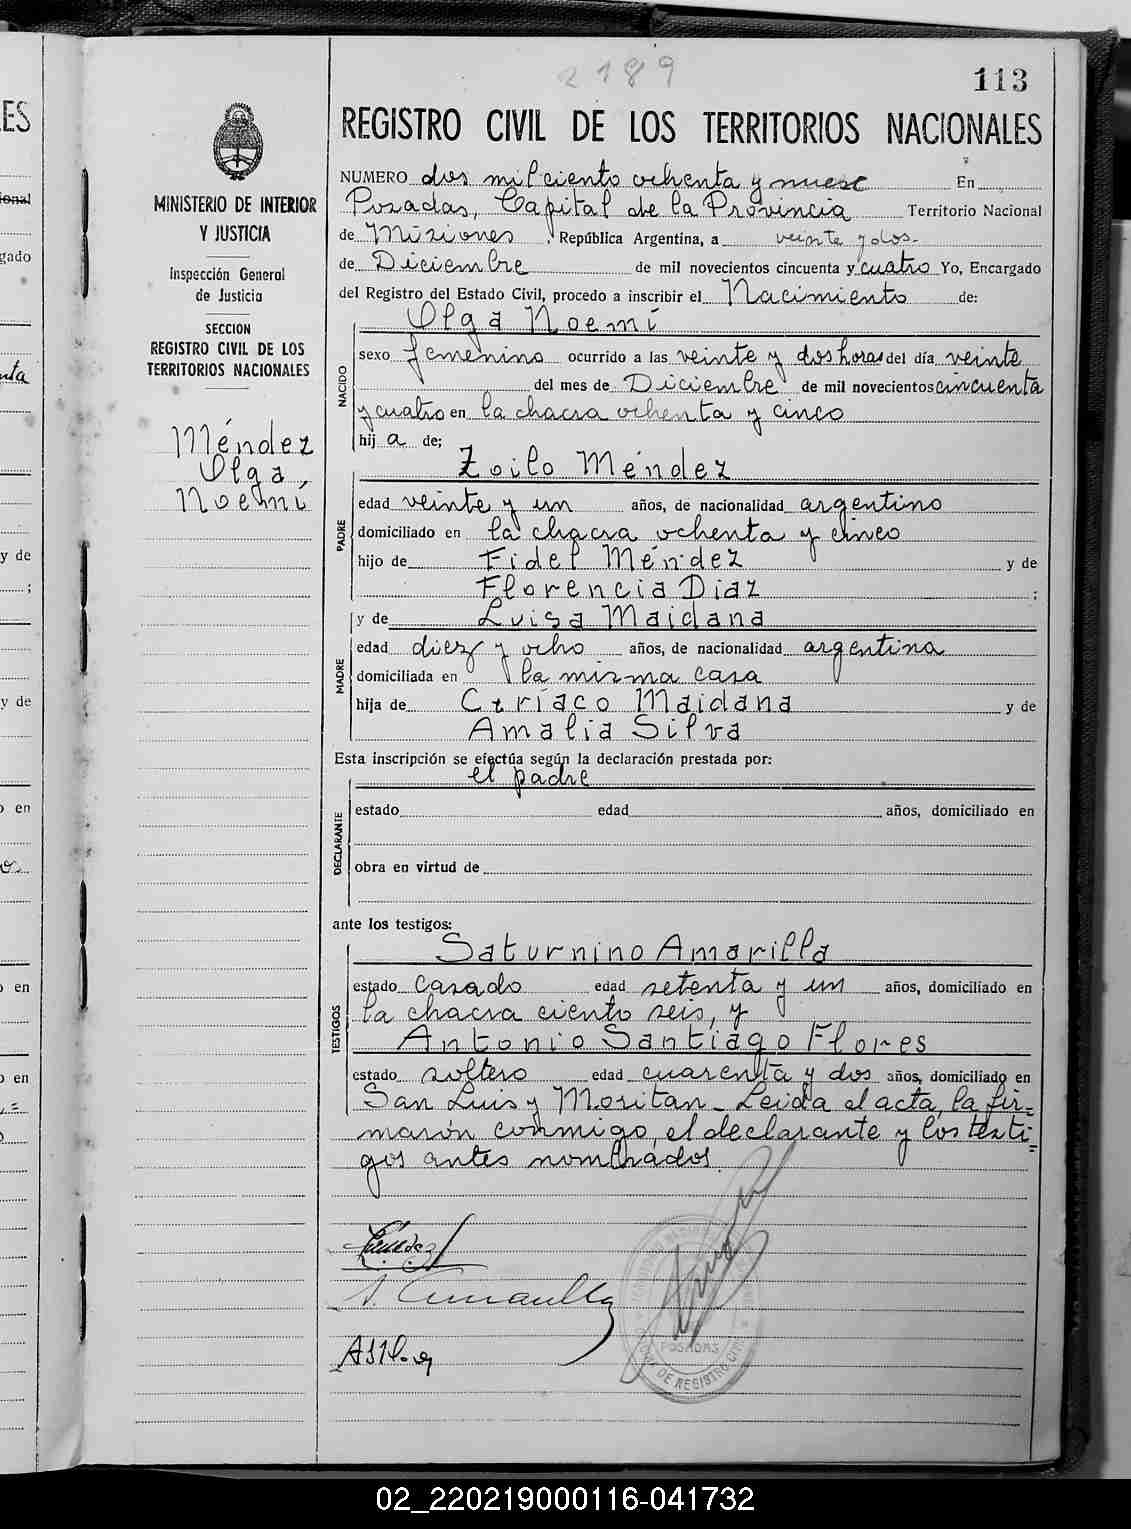 2189
113
REGISTRO CIVIL DE LOS TERRITORIOS NACIONALES
MINISTERIO DE INTERIOR
Y JUSTICIA
Inspección General
de Justicia
SECCION
REGISTRO CIVIL DE LOS
TERRITORIOS NACIONALES
Méndez
Olga
Noemí
NUMERO dos mil ciento ochenta y nueve En
Posadas, Capital de la Provincia Territorio Nacional
de Misiones, República Argentina, a veinte y dos-
de Diciembre de mil novecientos cincuenta y cuatro Yo, Encargado
del Registro del Estado Civil, procedo a inscribir el Nacimiento de:
Olga Noemí
NACIDO
sexo femenino ocurrido a las veinte y dos horas del día veinte
del mes de Diciembre de mil novecientos cincuenta
y cuatro en la chacra ochenta y cinco
hij a de;
Zoilo Méndez
PADRE
edad veinte y un años, de nacionalidad argentino
domiciliado en la chacra ochenta y cinco
hijo de Fidel Méndez y de
Florencia Diaz ;
y de Luisa Maidana
MADRE
edad diez y ocho años, de nacionalidad argentina
domiciliada en la misma casa
hija de Ciríaco Maidana y de
Amalia Silva
Esta inscripción se efectúa según la declaración prestada por:
el padre
DECLARANTE
estado edad años, domiciliado en
obra en virtud de
ante los testigos:
Saturnino Amarilla
TESTIGOS
estado casado edad setenta y un años, domiciliado en
la chacra ciento seis, y
Antonio Santiago Flores
estado soltero edad cuarenta y dos años, domiciliado en
San Luis y Moritan - Leída el acta, la fir=
marón conmigo, el declarante y los testi=
gos antes nombrados.
S. Amarilla
POSADAS
DE REGISTRO CIVIL
02_220219000116-041732